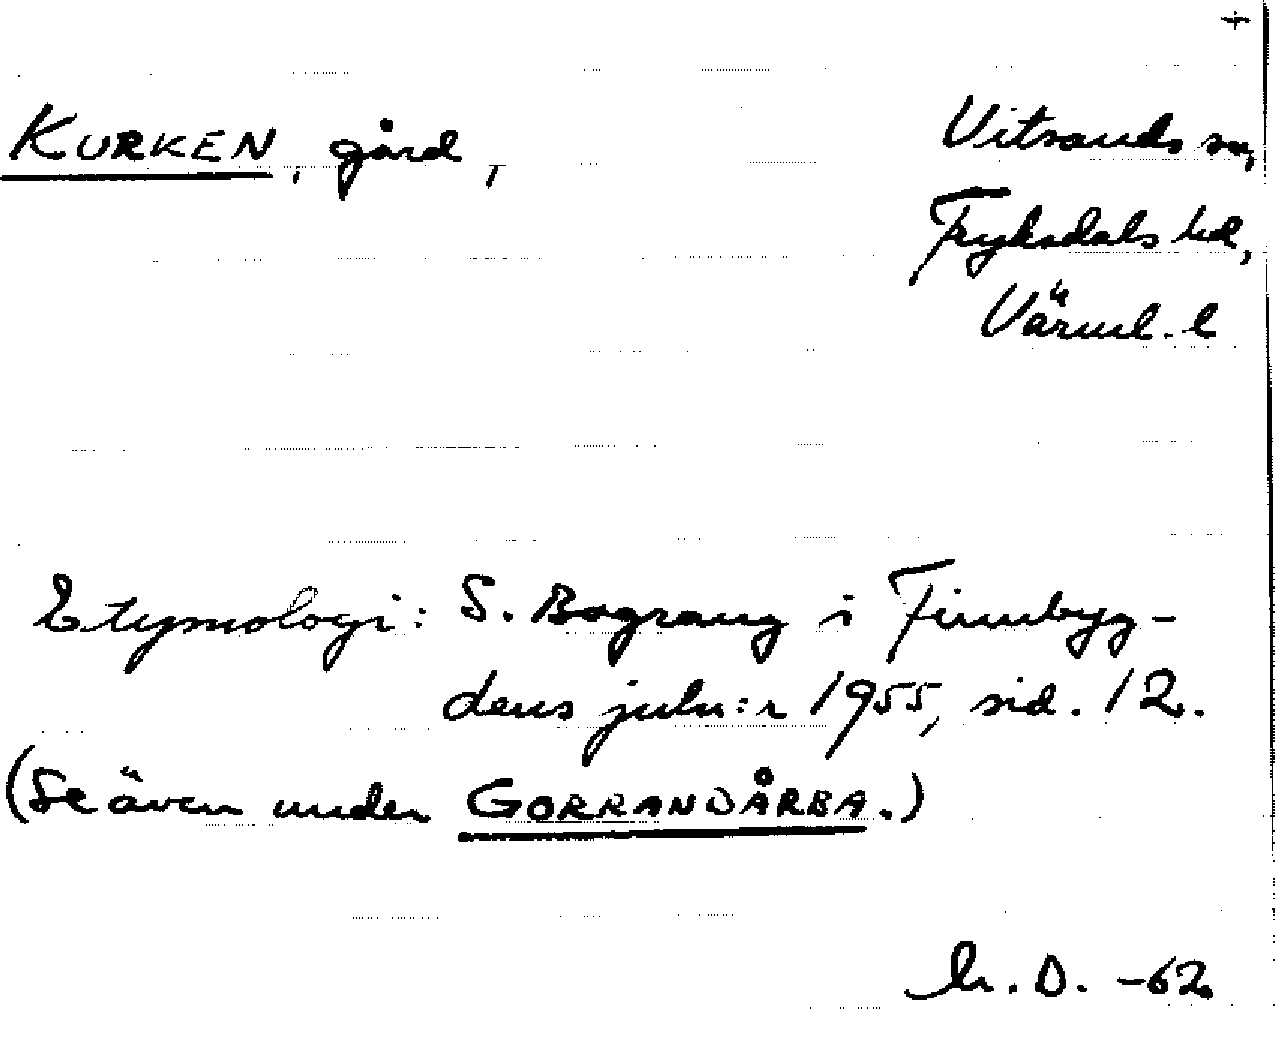 +
KURKEN, gård,
Vitsands sn,
Fryksdals hd,
Värml. l
Etymologi: S. Bograng i Finnbyg-
dens juln:r 1955, sid. 12.
(Se även under GORRANDÅRBA.)
D. -62